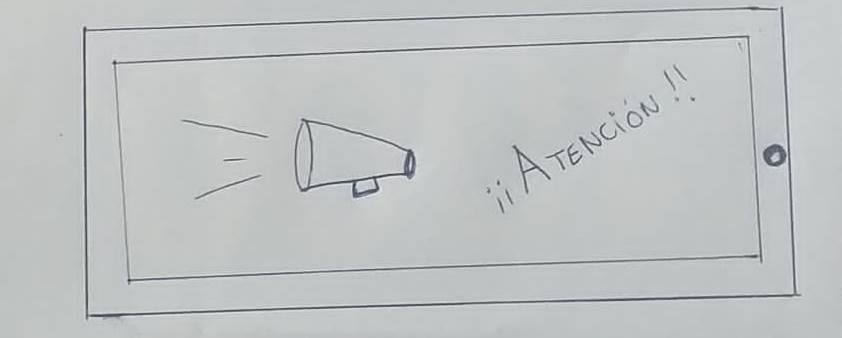 ¡¡ATENCIÓN!!